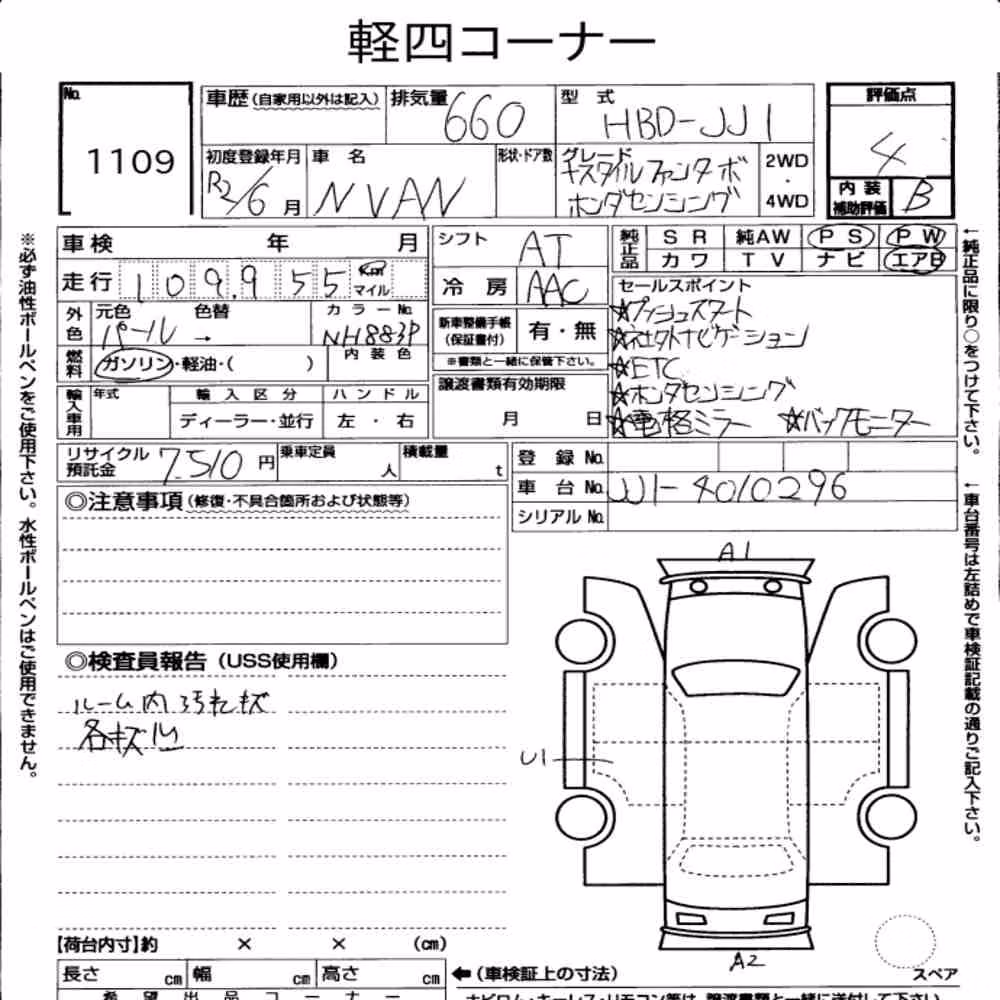 軽四コーナー
No. 1109
車歴 (自家用以外は記入)
排気量 660
型式 HBD-JJ1
評価点 4
初度登録年月 R2/6月
車名 N VAN
形状・ドア数
グレード
+スタイルファンターボ
ホンダセンシング
2WD
・
4WD
内装
補助評価 B
車検 年 月
シフト AT
純正品 SR 純AW PS PW
カワ TV ナビ エアB
走行 109,955 Km マイル
冷房 AAC
外色 元色 パール → 色替
カラーNo. NH883P
新車整備手帳
(保証書付) 有・無
※書類と一緒に保管下さい。
セールスポイント
☆プッシュスタート
☆社外ナビゲーション
☆ETC
☆ホンダセンシング
☆電格ミラー ☆バックモニター
燃料 ガソリン・軽油・( )
内装色
輸入車用 年式 輸入区分 ハンドル
ディーラー・並行 左・右
譲渡書類有効期限
月 日
リサイクル
預託金 7,510円
乗車定員 人
積載量 t
登録No.
車台No. JJ1-4010296
シリアルNo.
◎注意事項 (修復・不具合箇所および状態等)
◎検査員報告 (USS使用欄)
ルーム内汚れキズ
各キズ凹
A1
U1
A2
スペア
【荷台内寸】約 × × (cm)
長さ cm 幅 cm 高さ cm
←(車検証上の寸法)
希望出品コーナー
ナビロム・キーレス・リモコン等は、譲渡書類と一緒に送付して下さい
※必ず油性ボールペンをご使用下さい。水性ボールペンはご使用できません。
←純正品に限り○をつけて下さい。
←車台番号は左詰めで車検証記載の通りご記入下さい。